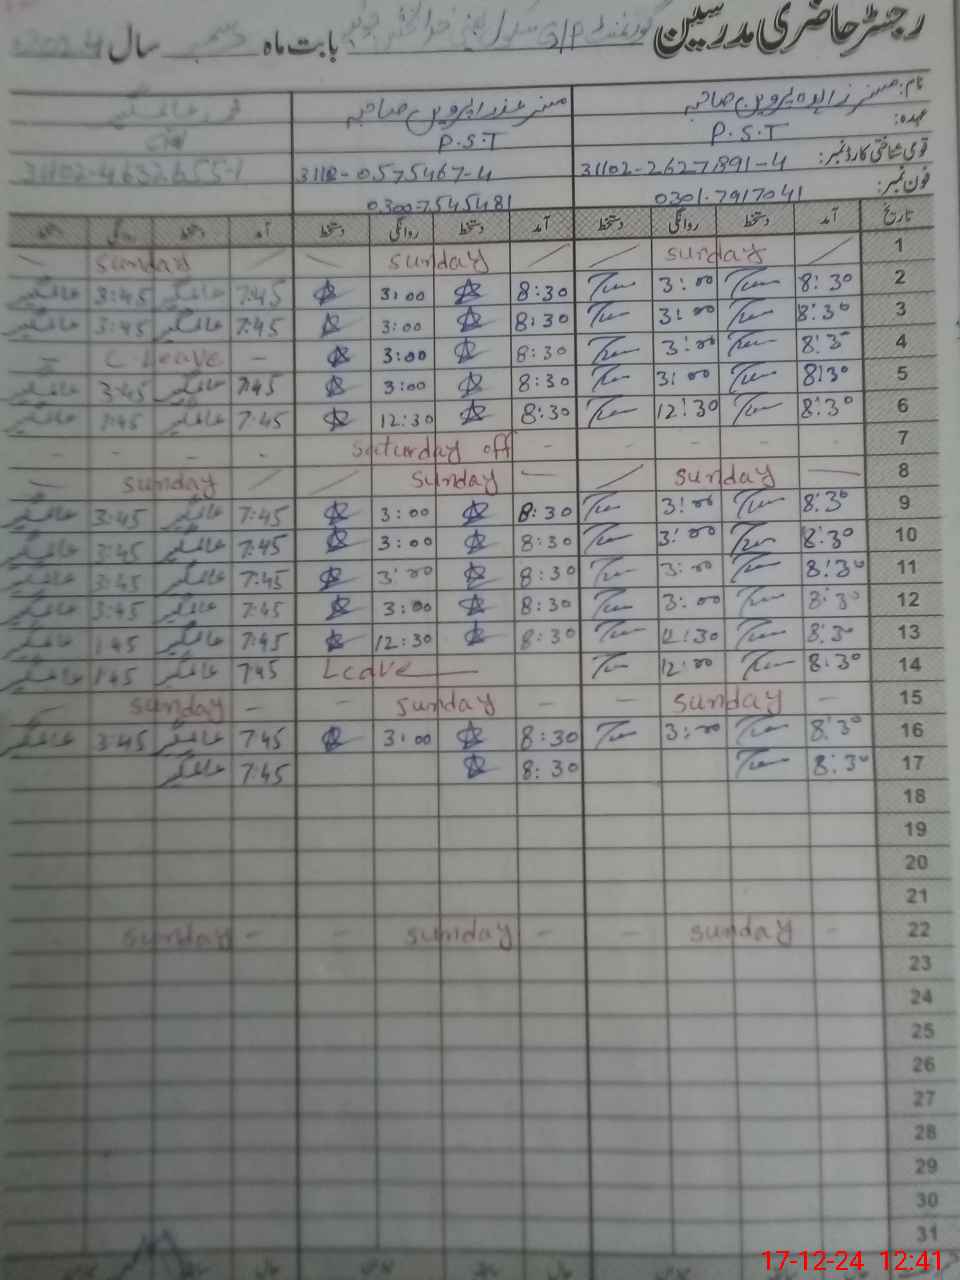 رجسٹر حاضری مدرسین گورنمنٹ G/P بابت ماہ دسمبر سال 2024
نام: مسز زاہدہ پروین صاحبہ مسز عذرا پروین صاحبہ
عہدہ: P.S.T P.S.T
قومی شناختی کارڈ نمبر: 31102-2627891-4 3110-0575467-4 31102-4632655-1
فون نمبر: 0301-7917041 03007545481
تاریخ آمد دستخط روانگی دستخط آمد دستخط روانگی دستخط آمد دستخط روانگی دستخط
1 sunday sunday sunday
2 8:30 3:00 8:30 3:00 7:45 عالمگیر 3:45 عالمگیر
3 8:30 3:00 8:30 3:00 7:45 عالمگیر 3:45 عالمگیر
4 8:30 3:00 8:30 3:00 - C Leave -
5 8:30 3:00 8:30 3:00 7:45 عالمگیر 3:45 عالمگیر
6 8:30 12:30 8:30 12:30 7:45 عالمگیر 1:45 عالمگیر
7 - - - - - saturday off - - - -
8 sunday sunday sunday
9 8:30 3:00 8:30 3:00 7:45 عالمگیر 3:45 عالمگیر
10 8:30 3:00 8:30 3:00 7:45 عالمگیر 3:45 عالمگیر
11 8:30 3:00 8:30 3:00 7:45 عالمگیر 3:45 عالمگیر
12 8:30 3:00 8:30 3:00 7:45 عالمگیر 3:45 عالمگیر
13 8:30 12:30 8:30 12:30 7:45 عالمگیر 1:45 عالمگیر
14 8:30 12:00 Leave 7:45 عالمگیر 1:45 عالمگیر
15 - sunday - - sunday - - sunday -
16 8:30 3:00 8:30 3:00 7:45 عالمگیر 3:45 عالمگیر
17 8:30 8:30 7:45 عالمگیر
18
19
20
21
22 - sunday - - sunday - - sunday
23
24
25
26
27
28
29
30
31
17-12-24 12:41